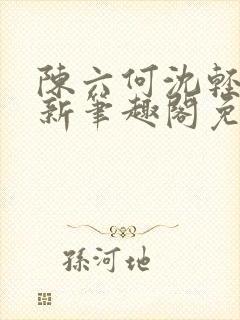 陳六何沈輕
新筆趣閣免
孫河地